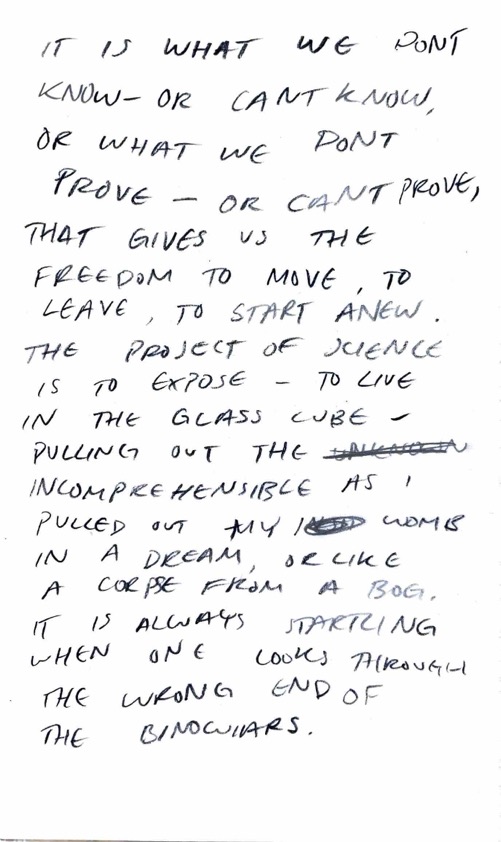 IT IS WHAT WE DONT
KNOW- OR CANT KNOW,
OR WHAT WE DONT
PROVE - OR CANT PROVE,
THAT GIVES US THE
FREEDOM TO MOVE, TO
LEAVE, TO START ANEW.
THE PROJECT OF SCIENCE
IS TO EXPOSE - TO LIVE
IN THE GLASS CUBE -
PULLING OUT THE
INCOMPREHENSIBLE AS I
PULLED OUT MY WOMB
IN A DREAM, OR LIKE
A CORPSE FROM A BOG.
IT IS ALWAYS STARTLING
WHEN ONE LOOKS THROUGH
THE WRONG END OF
THE BINOCULARS.